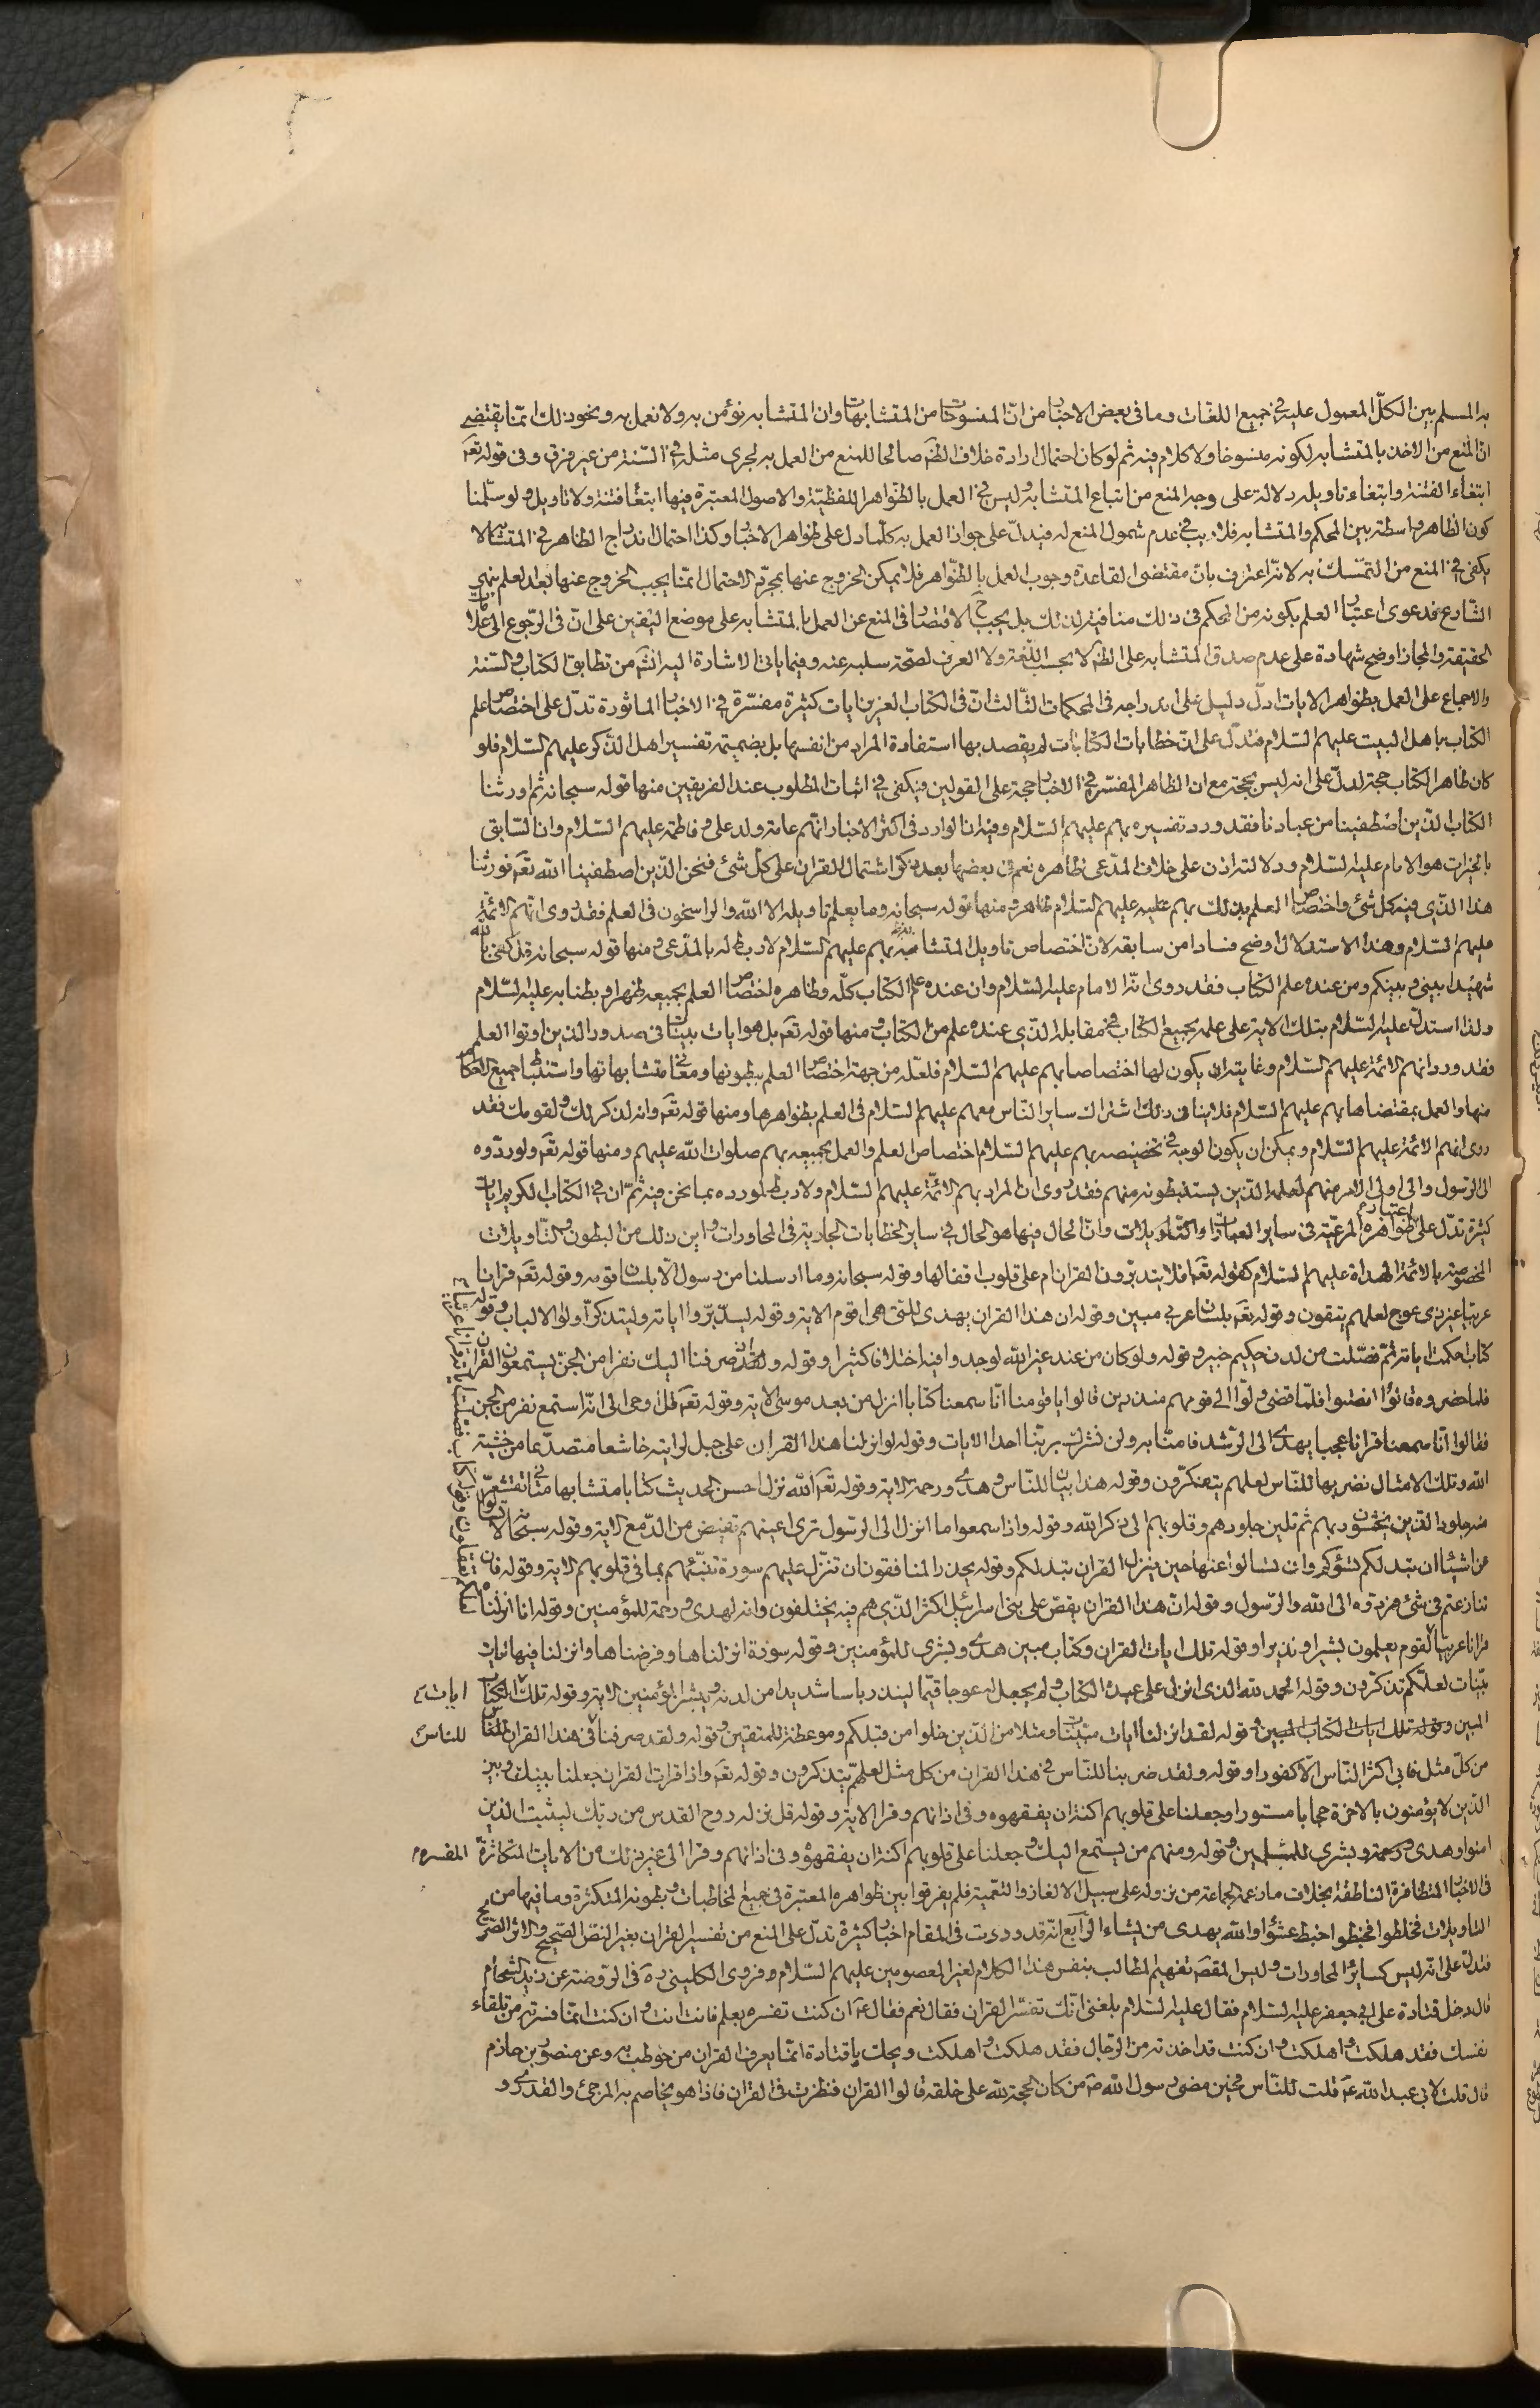 به المسلم بين الكلّ المعمول عليه في جميع اللغات وما فى بعض الاخبار من انّ المنسوخات من المتشابهات وان المتشابه نؤمن به ولا نعمل به ونحو ذلك انمّا يقتضى
انّ المنع من الاخذ بالمتشابه لكونه منسوخا ولا كلام فيه ثم لو كان احتمال ارادة خلاف الظّه صالحا للمنع من العمل به لجرى مثله في السّنة من غير فرق وفى قوله تعه
ابتغاء الفتنة وابتغاء تاويله دلالة على وجه المنع من اتباع المتشابه وليس في العمل بالظّواهر اللفظيّة والاصول المعتبرة فيها ابتغاء فتنة ولا تاويل ولو سلّمنا
كون الظاهر واسطة بين المحكم والمتشابه فلا ريب في عدم شمول المنع له فيدلّ على جواز العمل به كلّما دل على ظواهر الاخبار وكذا احتمال اندراج الظاهر في المتشابه لا
يكفى في المنع من التمّسك به لانّه اعترف بانّ مقتضى القاعدة وجوب العمل بالظّواهر فلا يمكن الخروج عنها بمجرّد الاحتمال انمّا يجب الخروج عنها بعد العلم بنهى
الشّارع فدعوى اعتبار العلم بكونه من المحكم فى ذلك منافية لذلك بل يجب ح الاقتصار فى المنع عن العمل بالمتشابه على موضع اليقين على انّ فى الرّجوع الى علائم
الحقيقة والمجاز اوضح شهادة على عدم صدق المتشابه على الظّه لا بحسب اللّغة ولا العرف لصّحة سلبه عنه وفيما ياتى الاشارة اليه انشه من تطابق الكتاب والسّنة
والاجماع على العمل بظواهر الايات ادلّ دليل على اندراجه فى المحكمات الثّالث انّ فى الكتاب العزيز ايات كثيرة مفسّرة في الاخبار الماثورة تدلّ على اختصاص علم
الكتاب باهل البيت عليهم السّلام فتدلّ على انّ خطابات الكتاب لم يقصد بها استفادة المراد من انفسها بل بضميمة تفسير اهل الذّكر عليهم السّلام فلو
كان ظاهر الكتاب حجة لدلّ على انه ليس بحجة مع ان الظاهر المفسّر في الاخبار حجة على القولين فيكفى في اثبات المطلوب عند الفريقين منها قوله سبحانه ثم اورثنا
الكتاب الذّين اصطفينا من عبادنا فقد ورد تفسيره بهم عليهم السّلام وفيه ان الوارد فى اكثر الاخبار انهّم عامة ولد على وفاطمة عليهم السّلام وان السّابق
بالخيرات هو الامام عليه السّلام ودلالته اذن على خلاف المدّعى ظاهره نعم فى بعضها بعد ذكر اشتمال القران على كلّ شئ فنحن الذّين اصطفينا الله تعه فورثنا
هذا الذّى فيه كل شئ واختصاص العلم بذلك بهم عليهم السّلام ظاهر ومنها قوله سبحانه وما يعلم تاويله الا الله والراسخون فى العلم فقد روى انهم الائمّة
عليهم السّلام وهذا الاستدلال اوضح فسادا من سابقه لانّ اختصاص تاويل المتشابه بهم عليهم السّلام لا ربط له بالمدّعى ومنها قوله سبحانه قل كفى بالله
شهيدا بينى وبينكم ومن عنده علم الكتاب فقد روى انّه الامام عليه السّلام وان عنده علم الكتاب كلّه وظاهره اختصاص العلم بجميعه ظهرا وبطنا به عليه السّلام
ولذا استدلّ عليه السّلام بتلك الاية على علمه بجميع الكتاب في مقابلة الذّي عنده علم من الكتاب ومنها قوله تعه بل هو ايات بينات فى صدور الذين اوتوا العلم
فقد ورد انهم الائمّة عليهم السّلام وغايته ان يكون لها اختصاصا بهم عليهم السّلام فلعّله من جهة اختصاص العلم ببطونها ومعانى متشابهاتها واستنباط جميع الاحكام
منها والعمل بمقتضاها بهم عليهم السّلام فلا ينافى ذلك اشتراك ساير النّاس معهم عليهم السّلام فى العلم بظواهرها ومنها قوله تعه وانه لذكر لك ولقومك فقد
روى انهم الائمّة عليهم السّلام ويمكن ان يكون الوجه في تخصيصه بهم عليهم السّلام اختصاص العلم والعمل بجميعه بهم صلوات الله عليهم ومنها قوله تعه ولو ردّوه
الى الرّسول والى اولى الامر منهم لعلمه الذّين يستنبطونه منهم فقد روى ان المراد بهم الائمّة عليهم السّلام ولا ربط لمورده بما نحن فيه ثمّ انّ في الكتاب الكريم ايات
كثيرة تدلّ على اعتبار ظواهره المرعيّة فى ساير العبارات والتّاويلات وانّ الحال فيها هو الحال في ساير الخطابات الجارية فى المحاورات واين ذلك من البطون والتّاويلات
المخصوصة بالائمّة الهداة عليهم السّلام كقوله تعه افلا يتدبّرون القران ام على قلوب اقفالها وقوله سبحانه وما ارسلنا من رسول الاّ بلسان قومه وقوله تعه قرانا
عربيّا غير ذى عوج لعلهم يتقون وقوله تعه بلسان عربي مبين وقوله ان هذا القران يهدى للتى هى اقوم الاية وقوله ليدّبّروا اياته وليتذكّر اولوا الالباب وقوله
كتاب احكمت اياته ثمّ فصّلت من لدن حكيم خبير وقوله ولو كان من عند غير الله لوجدوا فيه اختلافا كثيرا وقوله واذ صرفنا اليك نفرا من الجنّ يستمعون القران
فلما حضروه قالوا انصتوا فلمّا قضى ولّوا الى قومهم منذرين قالوا يا قومنا انّا سمعنا كتابا انزل من بعد موسى الاية وقوله تعه قل اوحى الى انّه استمع نفر من الجن
فقالوا انّا سمعنا قرانا عجبا يهدى الى الرّشد فامنّا به ولن نشرك بربّنا احدا الايات وقوله لو انزلنا هذا القران على جبل لرايته خاشعا متصدّعا من خشية
الله وتلك الامثال نضربها للنّاس لعلهم يتفكرّون وقوله هذا بيان للنّاس وهدى ورحمة الاية وقوله تعه الله نزل احسن الحديث كتابا متشابها مثانى تقشعرّ
منه جلود الذّين يخشون ربهم ثم تلين جلودهم وقلوبهم الى ذكر الله وقوله واذا سمعوا ما انزل الى الرسول ترى اعينهم تفيض من الدّمع الاية وقوله سبحانه لا تسئلوا
عن اشياء ان تبد لكم تسؤكم وان تسالوا عنها حين ينزل القران تبد لكم وقوله يحذر المنافقون ان تنزّل عليهم سورة تنبّئهم بما فى قلوبهم الاية وقوله فان
تنازعتم فى شئ فردّوه الى الله والرّسول وقوله انّ هذا القران يقصّ على بنى اسرائيل اكثر الذّى هم فيه يختلفون وانه لهدى ورحمة للمؤمنين وقوله انا انزلناه
قرانا عربيا لقوم يعلمون بشيرا ونذيرا وقوله تلك ايات القران وكتاب مبين هدى وبشرى للمؤمنين وقوله سورة انزلناها وفرضناها وانزلنا فيها ايات
بيّنات لعلّكم تذكّرون وقوله الحمد لله الذى انزل على عبده الكتاب ولم يجعل له عوجا قيّما لينذر باسا شديدا من لدنه ويبشر المؤمنين الاية وقوله تلك ايات الكتاب
المبين وقوله تلك ايات الكتاب المبين وقوله لقد انزلنا ايات مبيّنات ومثلا من الذّين خلوا من قبلكم وموعظة للمتقين وقوله ولقد صرفنا فى هذا القران للناس
من كلّ مثل فابى اكثر النّاس الاّ كفورا وقوله ولقد ضربنا للنّاس في هذا القران من كل مثل لعلهّم يتذكرون وقوله تعه واذا قرات القران جعلنا بينك وبين
الذّين لا يؤمنون بالاخرة حجابا مستورا وجعلنا على قلوبهم اكنة ان يفقهوه وفى اذانهم وقرا الاية وقوله قل نزله روح القدس من ربّك ليثبت الذين
امنوا وهدى ورحمة وبشرى للمسلمين وقوله ومنهم من يستمع اليك وجعلنا على قلوبهم اكنة ان يفقهوه وفى اذانهم وقرا الى غير ذلك من الايات المتكاثرة المفسره
فى الاخبار المتظافرة الناطقة بخلاف ما زعمه الجماعة من نزوله على سبيل الالغاز والتعّمية فلم يفرقوا بين ظواهره المعتبرة فى جميع المخاطبات وبطونه المتكثرة وما فيها من
التاويلات فخلطوا فخبطوا خبط عشواء والله يهدى من يشاء الرّابع انّه قد وردت فى المقام اخبار كثيرة تدلّ على المنع من تفسير القران بغير النصّ الصّحيح والاثر الصّريح
فتدلّ على انه ليس كساير المحاورات وليس المقصه تفهيم المطالب بنفس هذا الكلام لغير المعصومين عليهم السّلام فروى الكلينى ره فى الرّوضة عن زيد الشّحام
قال دخل قتادة على ابى جعفر عليه السّلام فقال عليه السّلام بلغنى انّك تفسّر القران فقال نعم فقال عه ان كنت تفسره بعلم فانت انت وان كنت انمّا فسرته من تلقاء
نفسك فقد هلكت واهلكت وان كنت قد اخذته من الرّجال فقد هلكت واهلكت ويحك يا قتادة انمّا يعرف القران من خوطب به وعن منصور بن حازم
قال قلت لابى عبد الله عه قلت للنّاس فحين مضى رسول الله صه من كان الحجة لله على خلقه قالوا القران فنظرت فى القران فاذا هو يخاصم به المرجئ والقدرى و